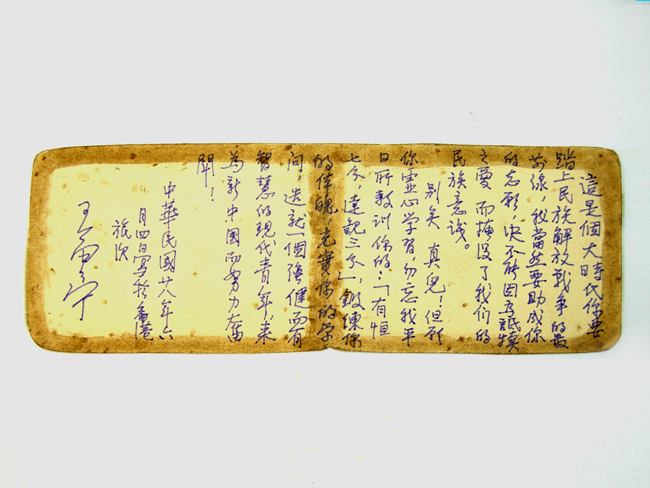 這是個大時代你要
踏上民族解放戰爭的最
前線，我當然要助成你
的志願，决不能因為舐犢
之愛而掩没了我们的
民族意識。
别矣真兒！但願
你虚心学習，勿忘我平
日所教訓你的：「有恒
七分，達觀三分」，鍛煉你
的体魄，充實你的学
问，造就一個强健而有
智慧的現代青年，来
為新中國而努力奮
鬥！
中華民國廿八年六
月四日寫於香港
旅次